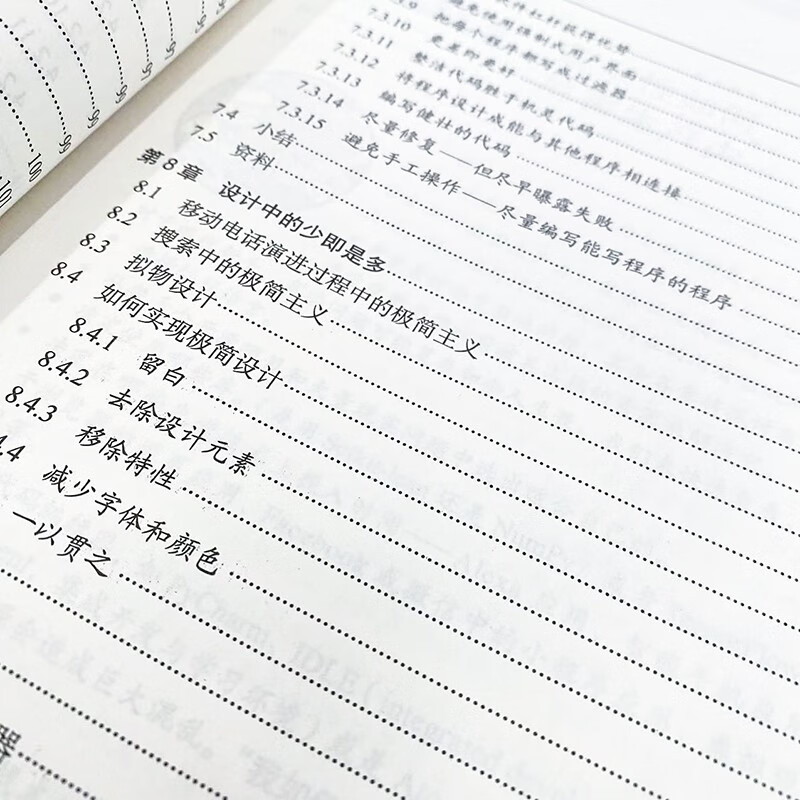 99
99
100
101
软件杠杆获得优势
避免使用强制式用户界面
.9 把每个程序都写成过滤器
7.3.10 更差即更好
7.3.11 整洁代码胜于机灵代码
7.3.12 将程序设计成能与其他程序相连接
7.3.13 编写健壮的代码
7.3.14 尽量修复——但尽早曝露失败
7.3.15 避免手工操作——尽量编写能写程序的程序
7.4 小结
7.5 资料
第8章 设计中的少即是多
8.1 移动电话演进过程中的极简主义
8.2 搜索中的极简主义
8.3 拟物设计
8.4 如何实现极简设计
8.4.1 留白
8.4.2 去除设计元素
8.4.3 移除特性
4.4 减少字体和颜色
一以贯之